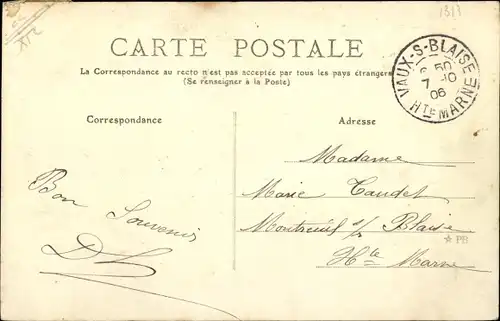 1313
CARTE POSTALE
La Correspondance au recto n'est pas acceptée par tous les pays étrangers
(Se renseigner à la Poste)
VAUX-S-BLAISE
6 50
7 -10
06
Hte MARNE
Correspondance
Adresse
Bon Souvenir
Madame
Marie Caudet
Montreuil s/ Blaise
Hte Marne
PB